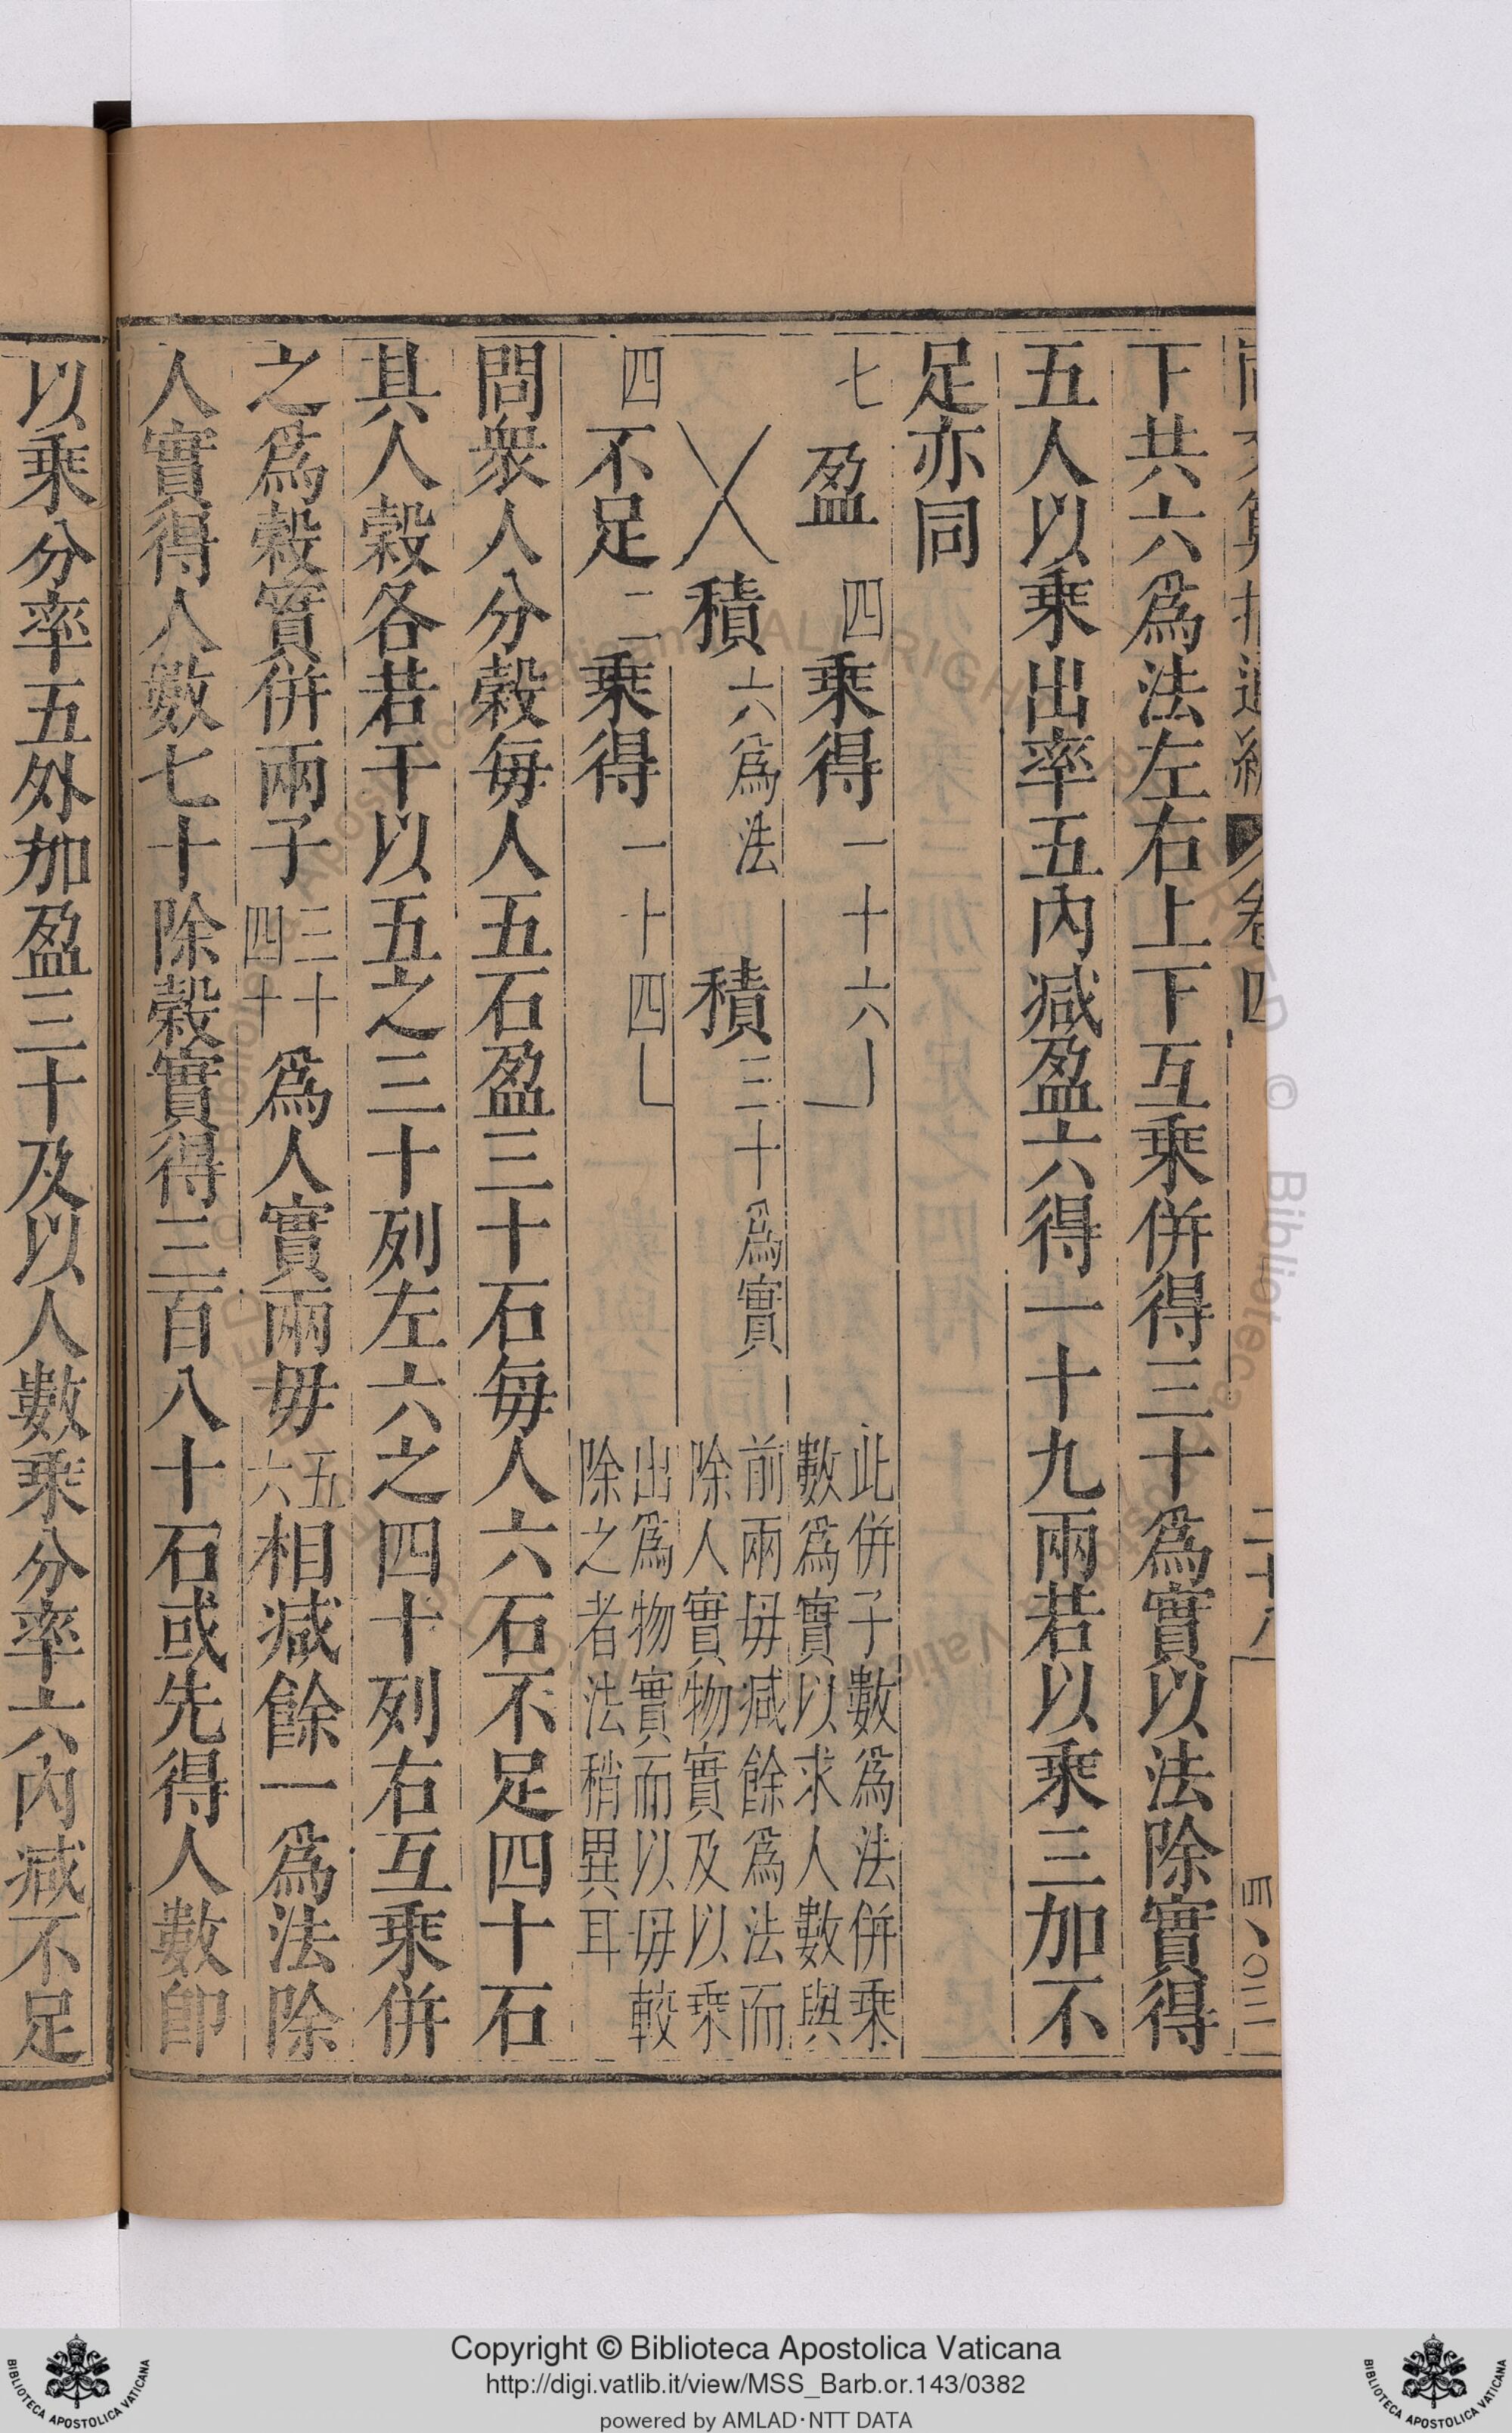 卷四
下共六爲法左右上下互乘併得三十爲實以法除實得
五人以乘出率五內減盈六得一十九兩若以乘三加不
足亦同
七 盈 四 乘得 一十六
此併子數爲法併乘
數爲實以求人數與
積 六爲法 積 三十爲實
前兩毋減餘爲法而
除人實物實及以乘
四 不足 二 乘得 一十四
出爲物實而以毋較
除之者法稍異耳
問衆人分穀每人五石盈三十石每人六石不足四十石
其人穀各若干以五之三十列左六之四十列右互乘併
之爲穀實併兩子三十四十爲人實兩毋五六相減餘一爲法除
人實得人數七十除穀實得三百八十石或先得人數卽
以乘分率五外加盈三十及以人數乘分率六內減不足
Copyright © Biblioteca Apostolica Vaticana
http://digi.vatlib.it/view/MSS_Barb.or.143/0382
powered by AMLAD·NTT DATA
BIBLIOTECA APOSTOLICA VATICANA
BIBLIOTECA APOSTOLICA VATICANA